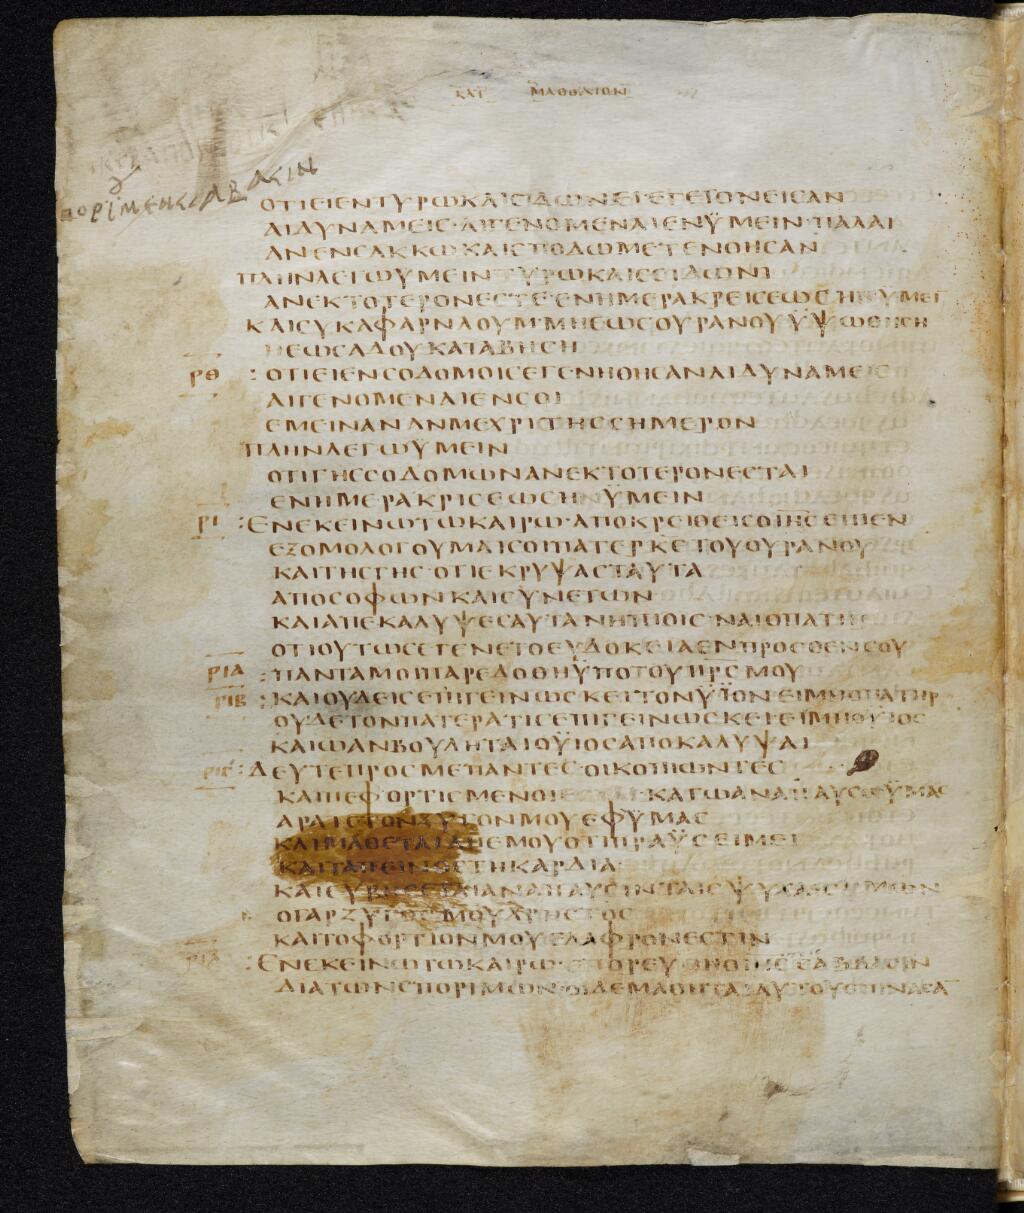 ΚΑΤ ΜΑΘΘΑΙΟΝ
ΟΤΙΕΙΕΝΤΥΡΩΚΑΙϹΙΔΩΝΕΙΕΓΕΓΟΝΕΙϹΑΝ
ΑΙΔΥΝΑΜΕΙϹ·ΑΙΓΕΝΟΜΕΝΑΙΕΝΫΜΕΙΝ·ΠΑΛΑΙ
ΑΝΕΝϹΑΚΚΩΚΑΙϹΠΟΔΩΜΕΤΕΝΟΗϹΑΝ
ΠΛΗΝΛΕΓΩΫΜΕΙΝΤΥΡΩΚΑΙϹΕΙΔΩΝΙ
ΑΝΕΚΤΟΤΕΡΟΝΕϹΤΕΕΝΗΜΕΡΑΚΡΕΙϹΕΩϹΗΝΫΜΕΙ
ΚΑΙϹΥΚΑΦΑΡΝΑΟΥΜ·ΜΗΕΩϹΟΥΡΑΝΟΥΫΨΩΘΗϹΗ
ΗΕΩϹΑΔΟΥΚΑΤΑΒΗϹΗ
ΡΘ :ΟΤΙΕΙΕΝϹΟΔΟΜΟΙϹΕΓΕΝΗΘΗϹΑΝΑΙΔΥΝΑΜΕΙϹ
ΑΙΓΕΝΟΜΕΝΑΙΕΝϹΟΙ
ΕΜΕΙΝΑΝΑΝΜΕΧΡΙΤΗϹϹΗΜΕΡΟΝ
ΠΛΗΝΛΕΓΩΫΜΕΙΝ
ΟΤΙΓΗϹϹΟΔΟΜΩΝΑΝΕΚΤΟΤΕΡΟΝΕϹΤΑΙ
ΕΝΗΜΕΡΑΚΡΙϹΕΩϹΗΫΜΕΙΝ
ΡΙ :ΕΝΕΚΕΙΝΩΤΩΚΑΙΡΩ·ΑΠΟΚΡΕΙΘΕΙϹΟΙΗϹΕΙΠΕΝ
ΕΞΟΜΟΛΟΓΟΥΜΑΙϹΟΙΠΑΤΕΡΚΕΤΟΥΟΥΡΑΝΟΥ
ΚΑΙΤΗϹΓΗϹ·ΟΤΙΕΚΡΥΨΑϹΤΑΥΤΑ
ΑΠΟϹΟΦΩΝΚΑΙϹΥΝΕΤΩΝ
ΚΑΙΑΠΕΚΑΛΥΨΕϹΑΥΤΑΝΗΠΙΟΙϹ·ΝΑΙΟΠΑΤΗΡ
ΟΤΙΟΥΤΩϹΕΓΕΝΕΤΟΕΥΔΟΚΕΙΑΕΝΠΡΟϹΘΕΝϹΟΥ
ΡΙΑ :ΠΑΝΤΑΜΟΙΠΑΡΕΔΟΘΗΫΠΟΤΟΥΠΡϹΜΟΥ
ΡΙΒ :ΚΑΙΟΥΔΕΙϹΕΠΙΓΕΙΝΩϹΚΕΙΤΟΝΫΪΟΝΕΙΜΗΟΠΑΤΗΡ
ΟΥΔΕΤΟΝΠΑΤΕΡΑΤΙϹΕΠΙΓΕΙΝΩϹΚΕΙΕΙΜΗΟΫΙΟϹ
ΚΑΙΩΑΝΒΟΥΛΗΤΑΙΟΫΙΟϹΑΠΟΚΑΛΥΨΑΙ
ΡΙΓ :ΔΕΥΤΕΠΡΟϹΜΕΠΑΝΤΕϹ·ΟΙΚΟΠΙΩΝΤΕϹ
ΚΑΙΠΕΦΟΡΤΙϹΜΕΝΟΙ ΚΑΓΩΑΝΑΠΑΥϹΩΫΜΑϹ
ΑΡΑΤΕΤΟΝΖΥΓΟΝΜΟΥΕΦΫΜΑϹ
ΚΑΙΜΑΘΕΤΑΙΑΠΕΜΟΥΟΤΙΠΡΑΫϹΕΙΜΕΙ
ΚΑΙΤΑΠΕΙΝΟϹΤΗΚΑΡΔΙΑ·
ΚΑΙΕΥΡΗϹΕΤΑΙΑΝΑΠΑΥϹΙΝΤΑΙϹΨΥΧΑΙϹΥΜΩΝ
ΟΓΑΡΖΥΓΟϹΜΟΥΧΡΗϹΤΟϹ
ΚΑΙΤΟΦΟΡΤΙΟΝΜΟΥΕΛΑΦΡΟΝΕϹΤΙΝ
ΡΙΔ :ΕΝΕΚΕΙΝΩΤΩΚΑΙΡΩ·ΕΠΟΡΕΥΘΗΟΙΗϹϹΑΒΒΑϹΙΝ
ΔΙΑΤΩΝϹΠΟΡΙΜΩΝ·ΟΙΔΕΜΑΘΗΤΑΙΑΥΤΟΥΕΠΙΝΑϹΑ